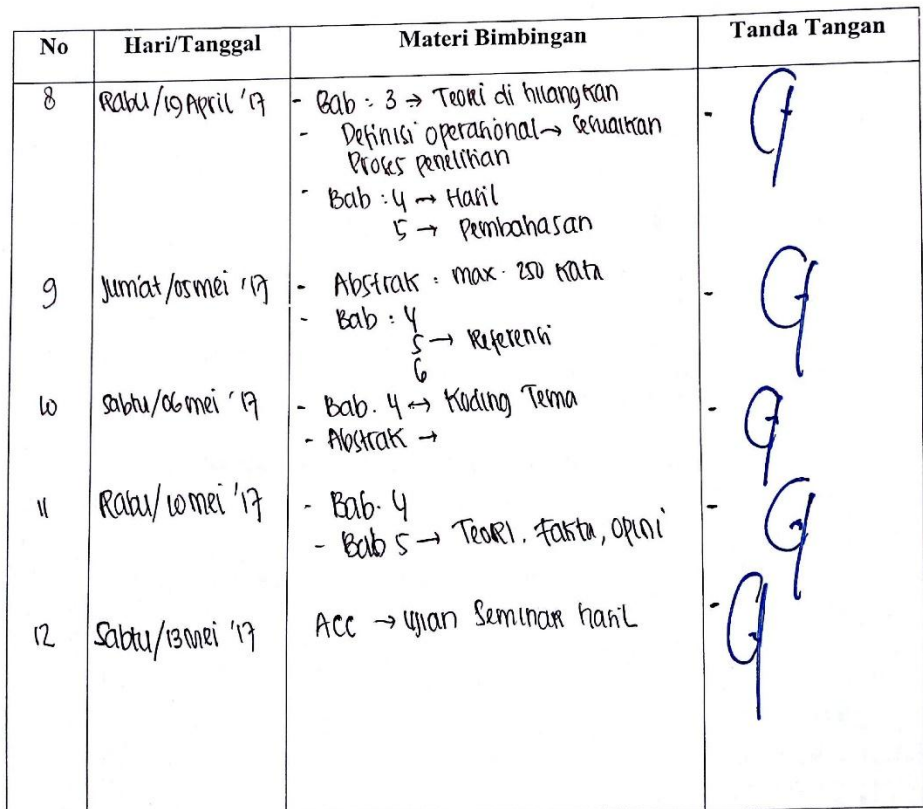 No Hari/Tanggal Materi Bimbingan Tanda Tangan
8 Rabu/19 April '17 - Bab : 3 → Teori di hilangkan
- Definisi operasional → sesuaikan
Proses penelitian
- Bab : 4 → Hasil
5 → Pembahasan
9 Jum'at/05 mei '17 - Abstrak : max. 250 kata
- Bab : 4
5 → Referensi
6
10 Sabtu/06 mei '17 - Bab. 4 ↔ Koding Tema
- Abstrak →
11 Rabu/10 mei '17 - Bab. 4
- Bab 5 → Teori, Fakta, Opini
12 Sabtu/13 mei '17 ACC → Ujian Seminar hasil